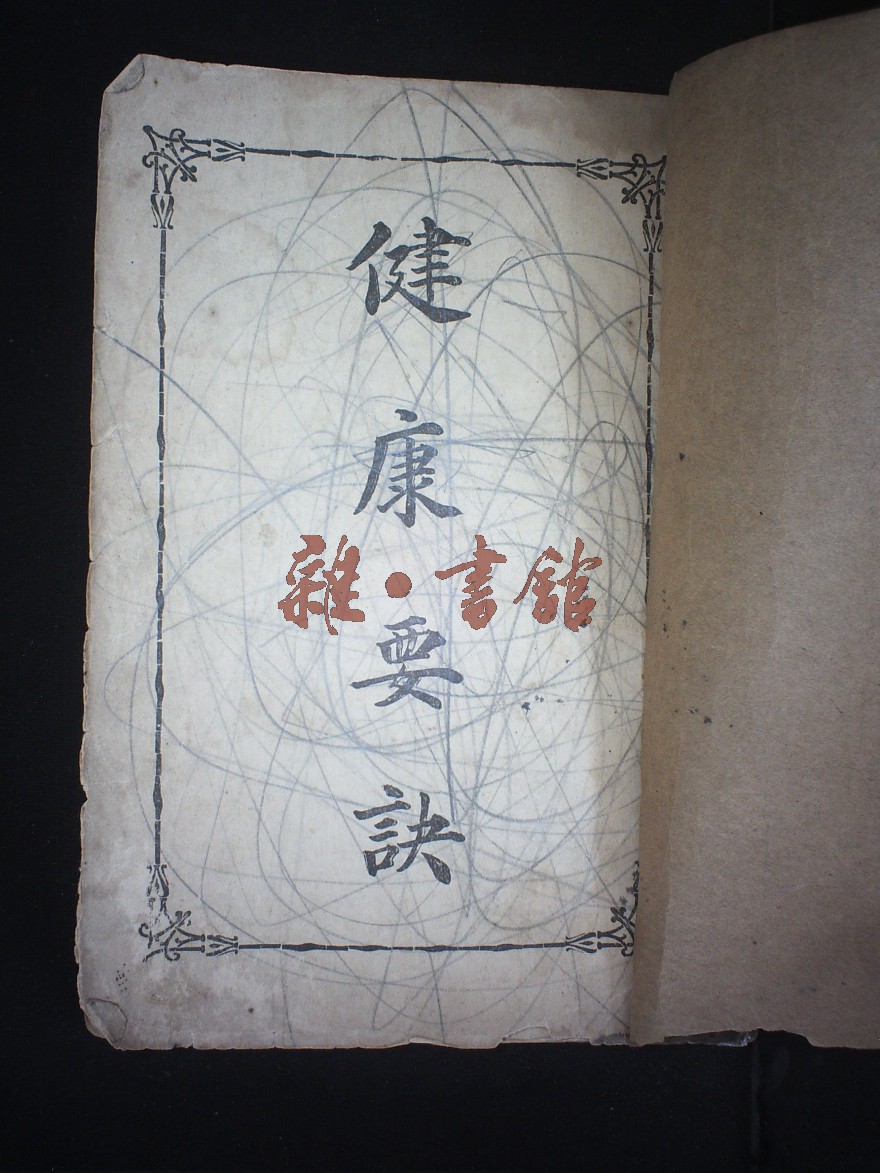 健康要訣
雜·書館